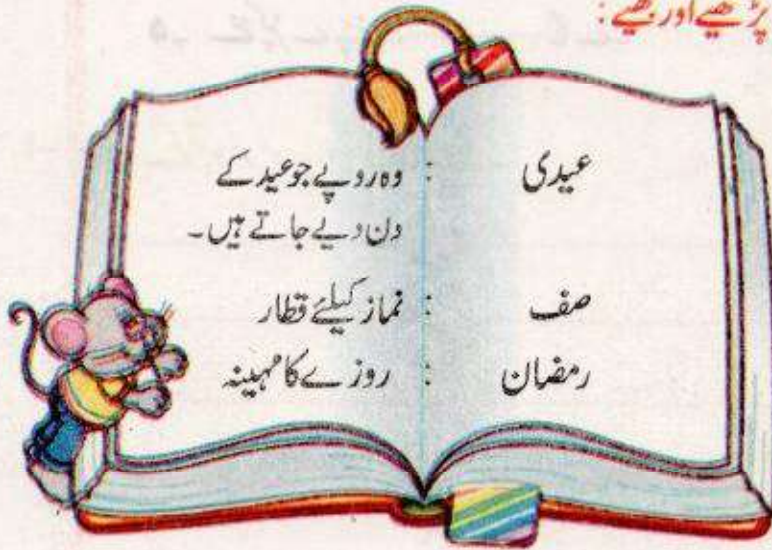 پڑھیے اور سمجھیے :
عیدی : وہ روپے جو عید کے
دن دیے جاتے ہیں۔
صف : نماز کیلئے قطار
رمضان : روزے کا مہینہ